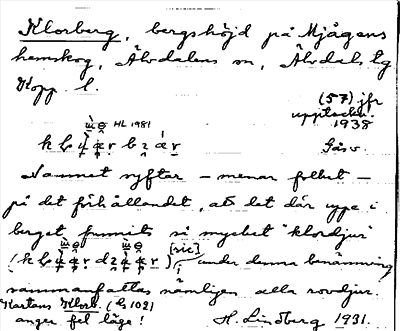 Klorberg, bergshöjd på Mjågens
hemskog, Älvdalens sn, Älvdals tg
Kopp. l.
(57) jfr
uppteckn.
1938
HL 1981
Namnet syftar – menar folket –
på det förhållandet, att det där uppe i
berget funnits så mycket "klordjur"
[sic] under denna benämning
sammanfattas nämligen alla rovdjur.
Kartans Klorb. (G 102)
anger fel läge!
H. Lindberg 1931.